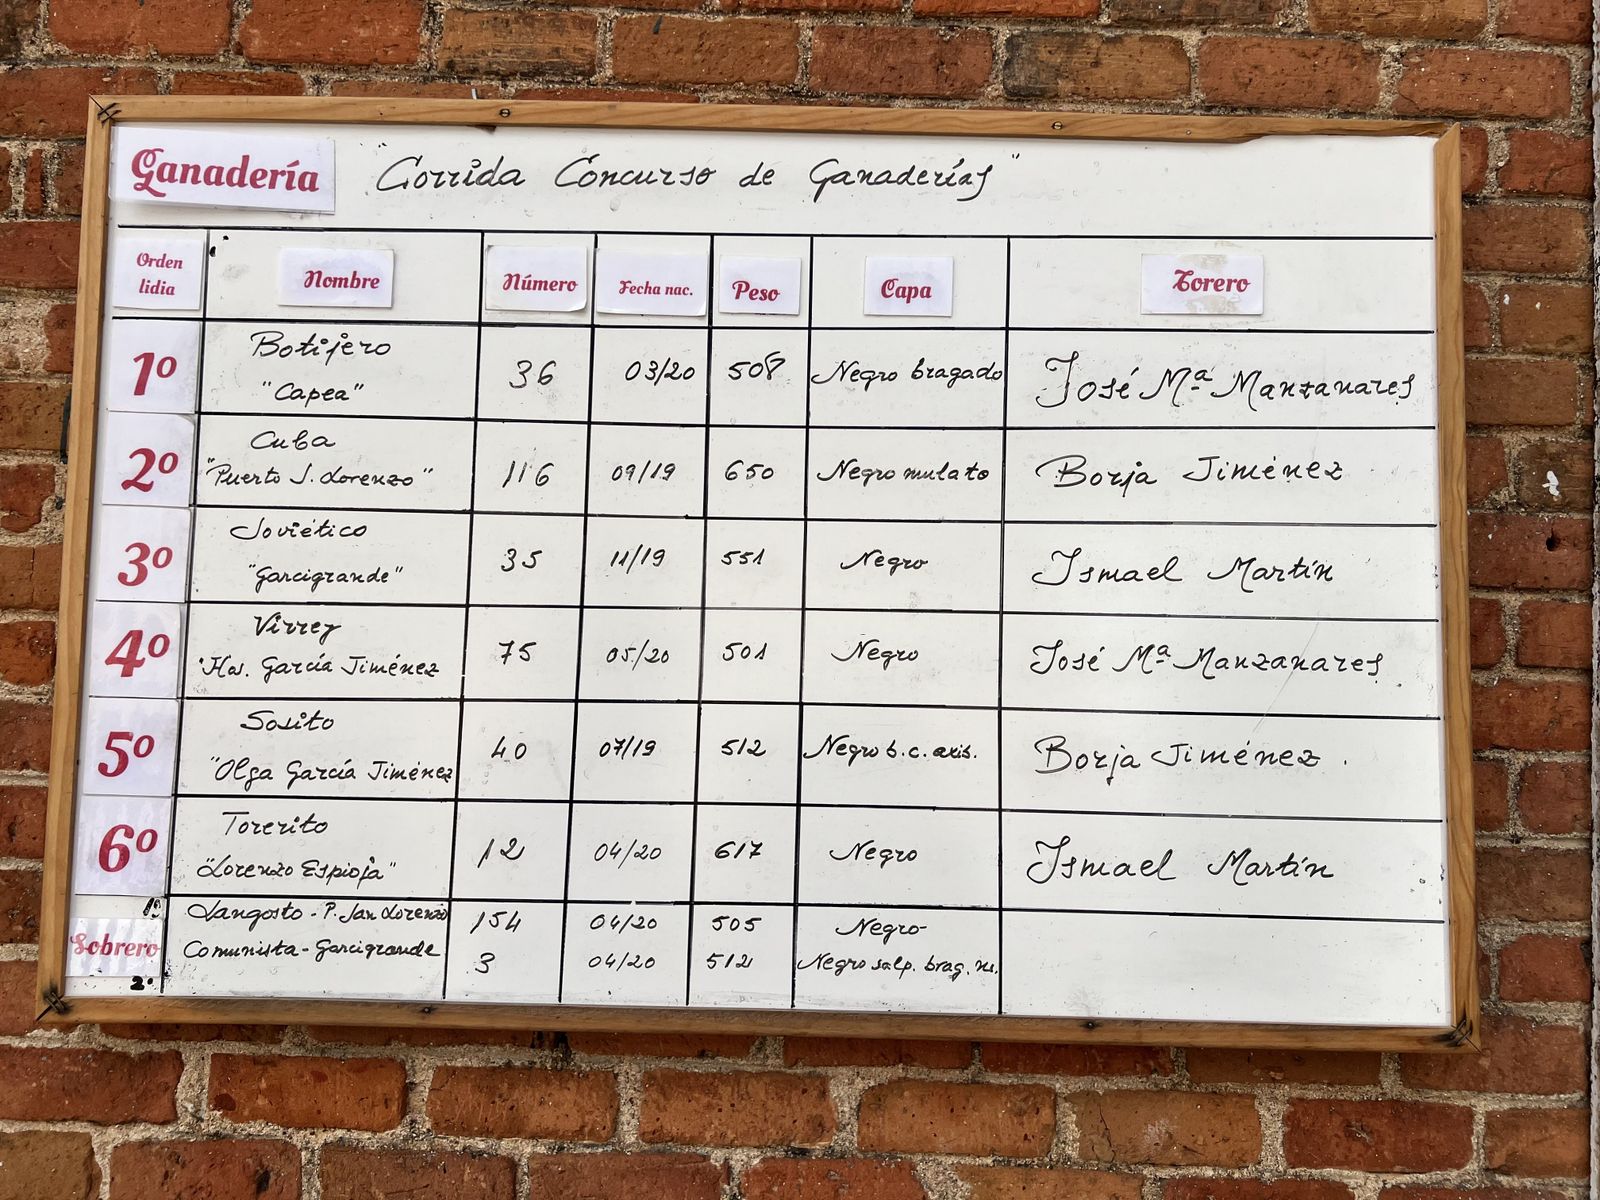 Ganadería "Corrida Concurso de Ganaderías"
Orden lidia Nombre Número Fecha nac. Peso Capa Torero
1º Botijero "Capea" 36 03/20 508 Negro bragado José Mª Manzanares
2º Cuba "Puerto S. Lorenzo" 116 09/19 650 Negro mulato Borja Jiménez
3º Soviético "Garcigrande" 35 11/19 551 Negro Ismael Martín
4º Virrey "Hos. García Jiménez 75 05/20 501 Negro José Mª Manzanares
5º Sosito "Olga García Jiménez 40 07/19 512 Negro b.c. axib. Borja Jiménez
6º Torerito "Lorenzo Espioja" 12 04/20 617 Negro Ismael Martín
Sobrero 1º Langosto - P. San Lorenzo 154 04/20 505 Negro-
2º Comunista - Garcigrande 3 04/20 512 Negro salp. brag.